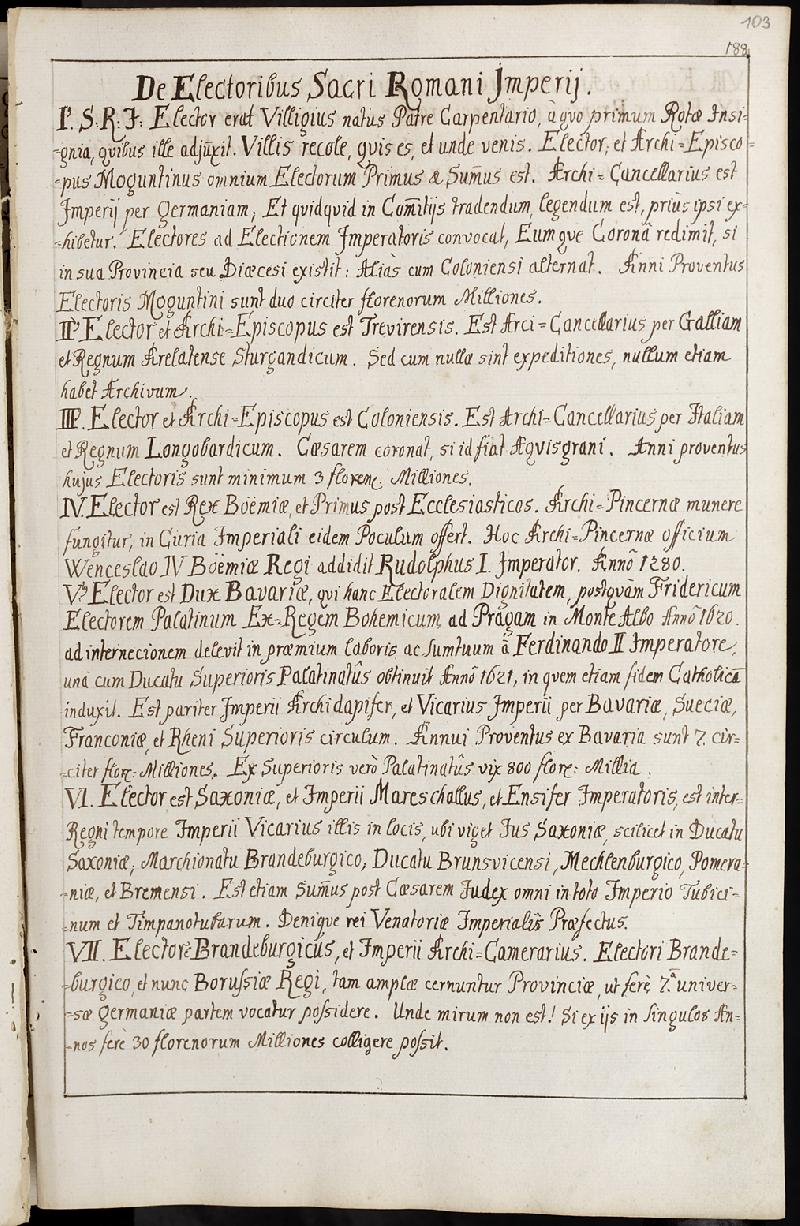 103
188
De Electoribus Sacri Romani Jmperij.
I.s S. R. J. Elector erat Villigius natus Patre Carpentario, à quo primum Rotæ Insi=
=gnia, quibus ille adjuxit. Villis recole, quis es, et unde venis. Elector, et Archi=Episco=
=pus Moguntinus omnium Electorum Primus & Sum̃us est. Archi=Cancellarius est
Jmperij per Germaniam, Et quidquid in Com̃itijs tradendum, legendum est, prius ipsi ex=
=hibetur. Electores ad Electionem Jmperatoris convocat, Eumque Coronâ redimit, si
in sua Provincia seu Diœcesi existit: Aliàs cum Coloniensi alternat. Anni Proventus
Electoris Moguntini sunt duo circiter florenorum Milliones.
II.s Elector et Archi=Episcopus est Trevirensis. Est Arci=Cancellarius per Galliam
et Regnum Arelatense Sturgandicum. Sed cum nullæ sint expeditiones, nullum etiam
habet Archivum.
III.s Elector et Archi=Episcopus est Coloniensis. Est Archi=Cancellarius per Italiam
et Regnum Longobardicum. Cæsarem coronat, si id fiat Æquisgrani. Anni proventus
hujus Electoris sunt minimum 3 floren: Milliones.
IV. Elector est Rex Boëmiæ, et Primus post Ecclesiasticos. Archi=Pincernæ munere
fungitur, in Curia Jmperiali eidem Poculum offert. Hoc Archi=Pincernæ officium
Wenceslao IV Boëmiæ Regi addidit Rudolphus I. Jmperator. Annô 1280.
V.s Elector est Dux Bavariæ, qui hanc Electoralem Dignitatem, postquàm Fridericum
Electorem Palatinum Ex=Regem Bohemicum, ad Pragam in Monte Albo Annô 1620.
ad internecionem delevit in præmium laboris ac sumtuum à Ferdinando II Imperatore,
una cum Ducatu Superioris Palatinatûs obtinuit Annô 1621, in quem etiam fidem Catholicã
induxit. Est pariter Jmperii Archidapifer, et Vicarius Jmperii per Bavariæ, Sueciæ,
Franconiæ, et Rheni Superioris circulum. Annui Proventus ex Bavaria sunt 7. cir=
=citer flor: Milliones. Ex Superioris verò Palatinatûs vix 800 flor: Millia.
VI. Elector est Saxoniæ, et Jmperii Mareschallus, et Ensifer Jmperatoris, est inter=
Regni tempore Jmperii Vicarius illis in locis, ubi viget Jus Saxoniæ, scilicet in Ducatu
Saxoniæ, Marchionatu Brandeburgico, Ducatu Brunsvicensi, Mechlenburgico, Pomera=
=niæ, et Bremensi. Est etiam Sum̃us post Cæsarem Judex omni in toto Jmperio Tubici=
=num et Timpanotubarum. Denique rei Venatoriæ Jmperialis Præfectus.
VII. Elector Brandeburgicus, et Jmperii Archi=Camerarius. Electori Brande=
=burgico, et nunc Borussiæ Regi, tam amplæ cernuntur Provinciæ, ut ferè 7.am univer=
=sæ Germaniæ partem vocatur possidere. Unde mirum non est! Si ex ijs in singulos An=
=nos fere 30 florenorum Milliones colligere possit.